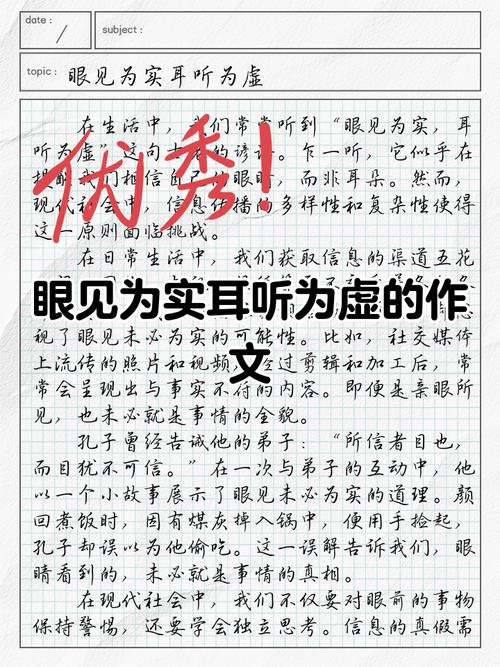 date :
subject :
topic : 眼见为实耳听为虚
在生活中，我们常常听到“眼见为实，耳
听为虚”这句古老的谚语。乍一听，它似乎在
提醒我们相信自己的眼睛，而非耳朵。然而，
现代社会中，信息传播的多样性和复杂性使得
这一原则面临挑战。
优秀！
在日常生活中，我们获取信息的渠道五花
眼见为实耳听为虚的作
文
视了眼见未必为实的可能性。比如，社交媒体
上流传的照片和视频，经过剪辑和加工后，常
常会呈现出与事实不符的内容。即便是亲眼所
见，也未必就是事情的全貌。
孔子曾经告诫他的弟子：“所信者目也，
而目犹不可信。”在一次与弟子的互动中，他
以一个小故事展示了眼见未必为实的道理。颜
回煮饭时，因有煤灰掉入锅中，便用手捡起，
孔子却误以为他偷吃。这一误解告诉我们，眼
睛看到的，未必就是事情的真相。
在现代社会中，我们不仅要对眼前的事物
保持警惕，还要学会独立思考。信息的真假需